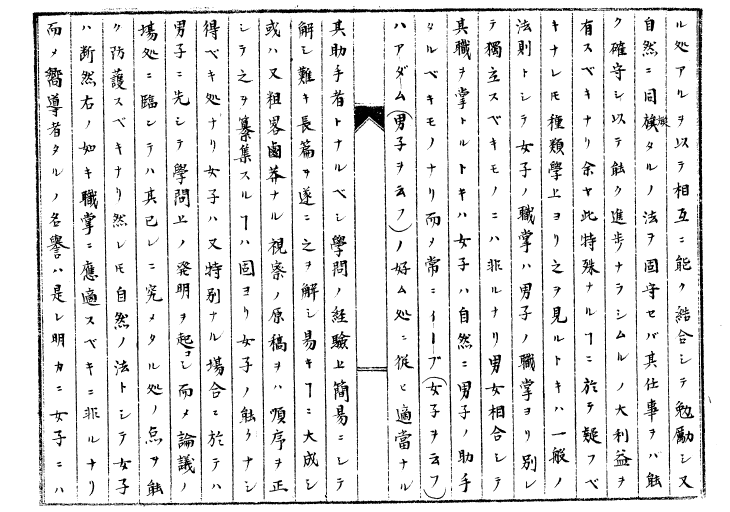 ル処アルヲ以テ相互ニ能ク結合シテ勉励シ又
自然ニ同族タルノ法ヲ固守セバ其仕事ヲハ能
ク確守シ以テ能ク進歩ナラシムルノ大利益ヲ
有スベキナリ余ヤ此特殊ナルヿニ於テ疑フベ
キナレ𪜈種類學上ヨリ之ヲ見ルトキハ一般ノ
法則トシテ女子ノ職掌ハ男子ノ職掌ヨリ別レ
テ獨立スベキモノニハ非ルナリ男女相合シテ
其職ヲ掌トルトキハ女子ハ自然ニ男子ノ助手
タルベキモノナリ而〆常ニイーブ(女子ヲ云フ)
ハアダム(男子ヲ云フ)ノ好ム処ニ従ヒ適當ナル
其助手者トナルベシ學問ノ経驗上簡易ニシテ
解シ難キ長篇ヲ遂ニ之ヲ解シ易キヿニ大成シ
或ハ又粗畧鹵莽ナル視察ノ原稿ヲハ順序ヲ正
シテ之ヲ纂集スルヿハ固ヨリ女子ノ能クナシ
得ベキ処ナリ女子ハ又特別ナル場合ニ於テハ
男子ニ先シテ學問上ノ発明ヲ起コシ而〆論議ノ
場処ニ臨シテハ其已レニ究メタル処ノ点ヲ能
ク防護スベキナリ然レ𪜈自然ノ法トシテ女子
ハ断然右ノ如キ職掌ニ應適スベキニ非ルナリ
而〆嚮導者タルノ名譽ハ是レ明カニ女子ニハ